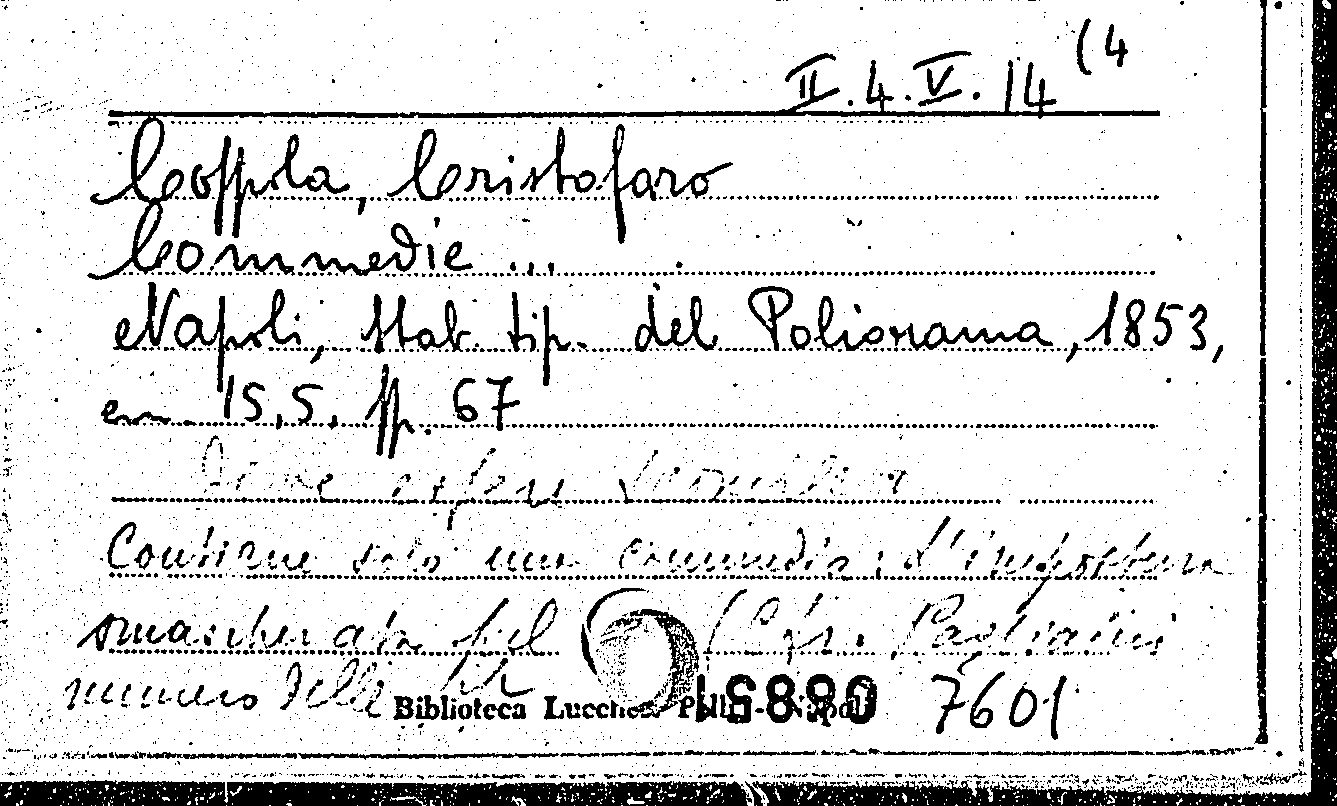 II.4.V.14 (4
Coppola, Cristofaro
Commedie ...
Napoli, Stab. tip. del Poliorama, 1853,
cm. 15,5, pp. 67
Deve essere
Contiene solo una commedia: L'impostura
smascherata (Cfr. Pagliaini
numero delle
Biblioteca Lucchesi Palli - Napoli
7601